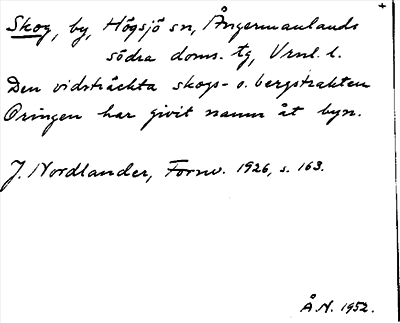 Skog, by, Högsjö sn, Ångermanlands
södra doms. tg, Vrnl. l.
Den vidsträckta skogs- o. bergstrakten
Oringen har givit namn åt byn.
J. Nordlander, Fornv. 1926, s. 163.
Å.N. 1952.